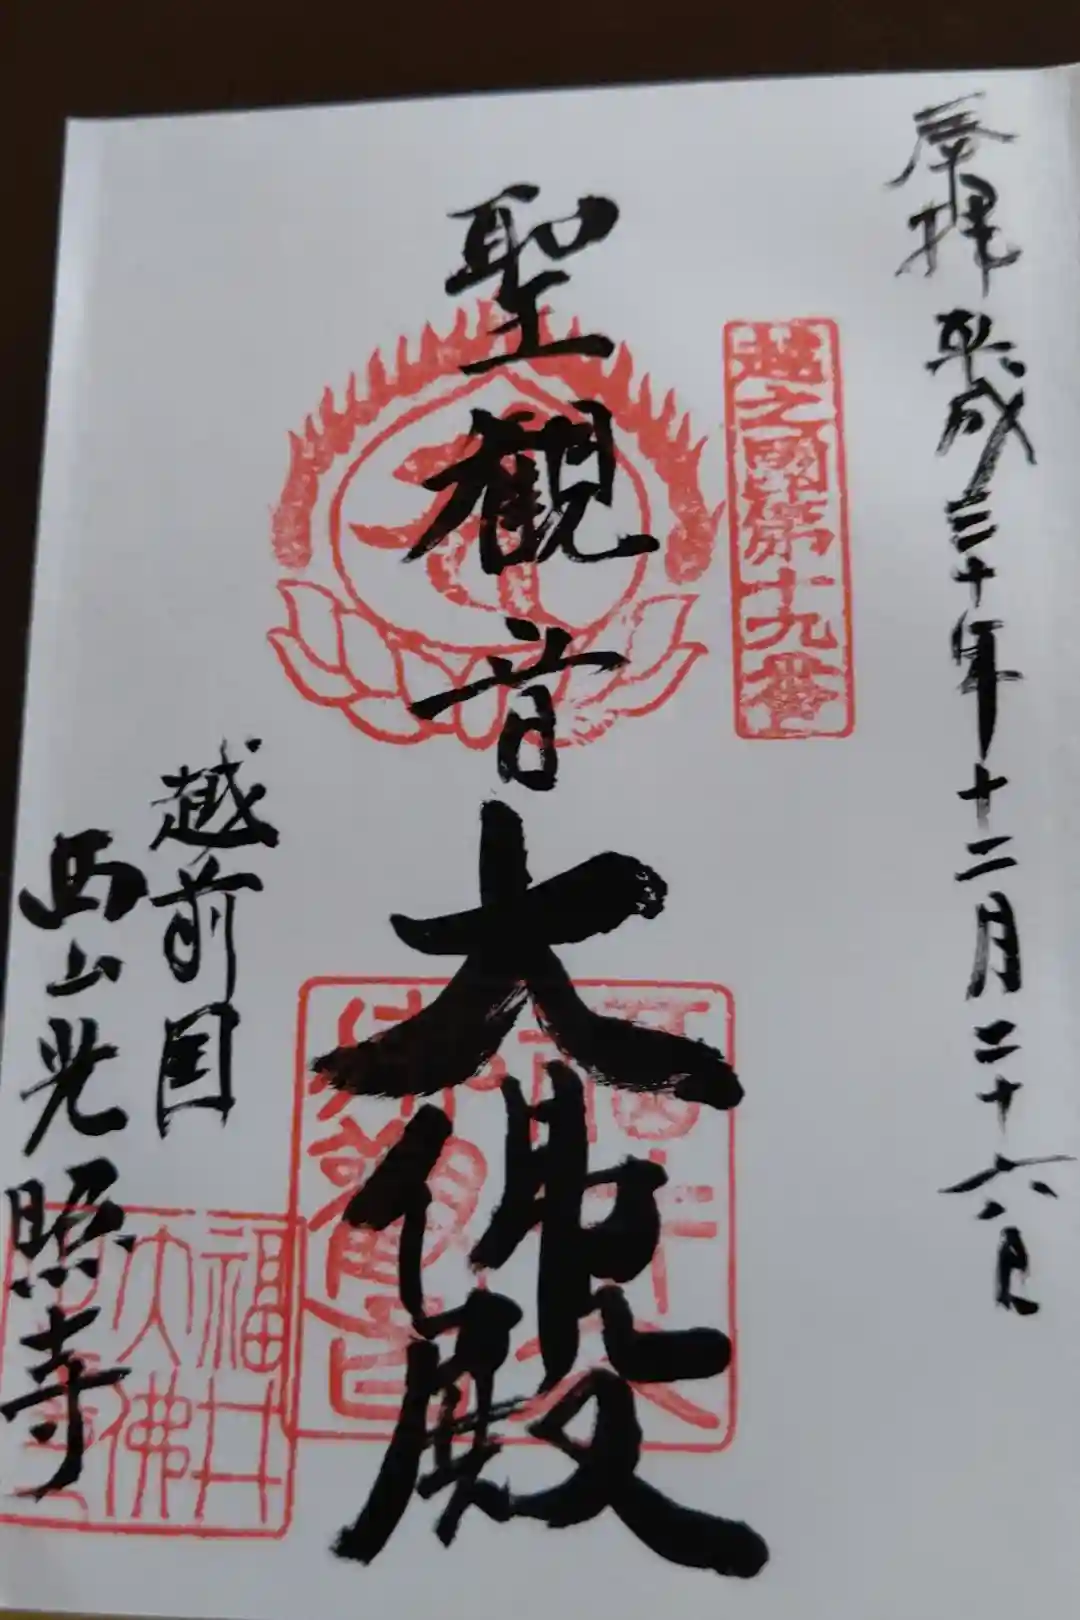 奉拝 平成三十年十二月二十六日
越之國第十九番
聖観音
大佛殿
越前国
西山光照寺
福井
大佛